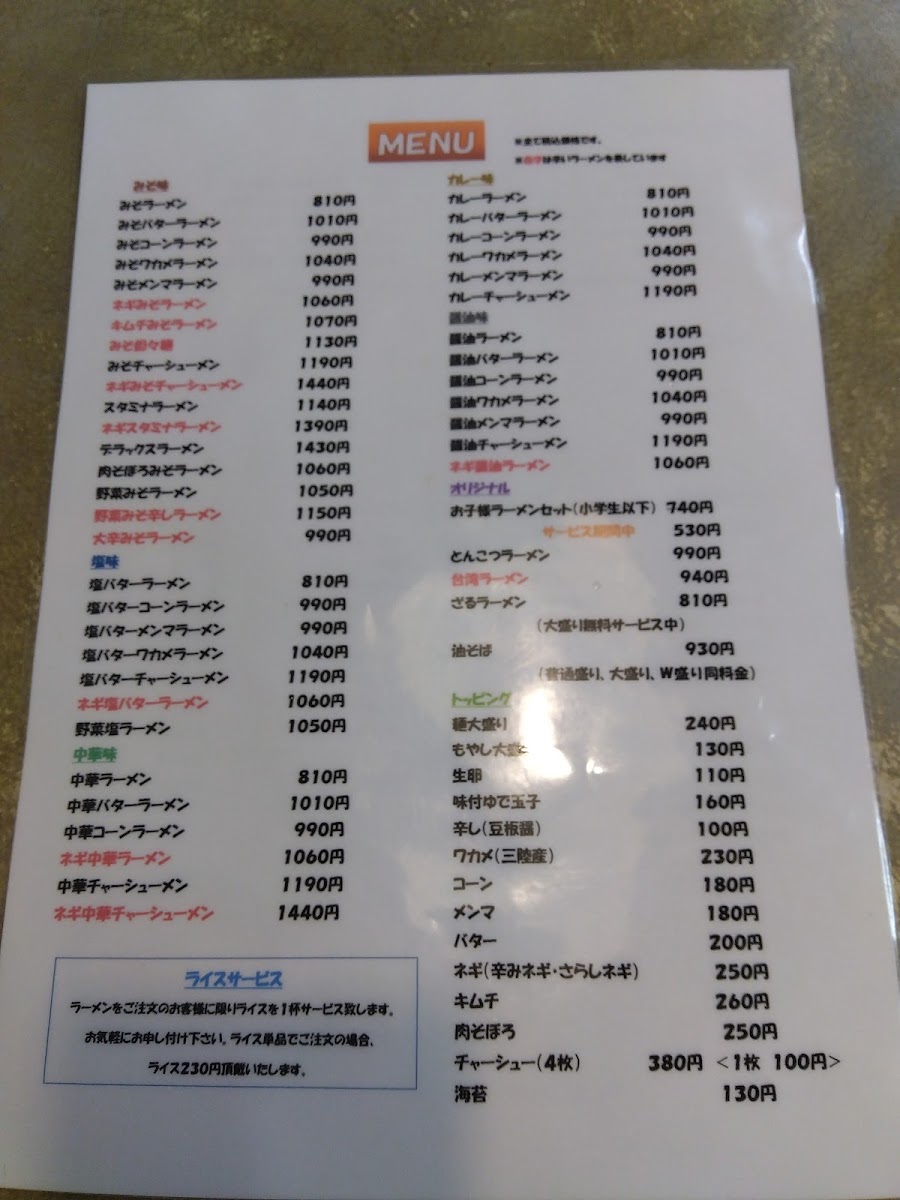 MENU
※全て税込価格です。
※赤字は辛いラーメンを表しています
みそ味
みそラーメン 810円
みそバターラーメン 1010円
みそコーンラーメン 990円
みそワカメラーメン 1040円
みそメンマラーメン 990円
ネギみそラーメン 1060円
キムチみそラーメン 1070円
みそ担々麺 1130円
みそチャーシューメン 1190円
ネギみそチャーシューメン 1440円
スタミナラーメン 1140円
ネギスタミナラーメン 1390円
デラックスラーメン 1430円
肉そぼろみそラーメン 1060円
野菜みそラーメン 1050円
野菜みそ辛しラーメン 1150円
大辛みそラーメン 990円
塩味
塩バターラーメン 810円
塩バターコーンラーメン 990円
塩バターメンマラーメン 990円
塩バターワカメラーメン 1040円
塩バターチャーシューメン 1190円
ネギ塩バターラーメン 1060円
野菜塩ラーメン 1050円
中華味
中華ラーメン 810円
中華バターラーメン 1010円
中華コーンラーメン 990円
ネギ中華ラーメン 1060円
中華チャーシューメン 1190円
ネギ中華チャーシューメン 1440円
ライスサービス
ラーメンをご注文のお客様に限りライスを1杯サービス致します。
お気軽にお申し付け下さい。ライス単品でご注文の場合、
ライス230円頂戴いたします。
カレー味
カレーラーメン 810円
カレーバターラーメン 1010円
カレーコーンラーメン 990円
カレーワカメラーメン 1040円
カレーメンマラーメン 990円
カレーチャーシューメン 1190円
醤油味
醤油ラーメン 810円
醤油バターラーメン 1010円
醤油コーンラーメン 990円
醤油ワカメラーメン 1040円
醤油メンマラーメン 990円
醤油チャーシューメン 1190円
ネギ醤油ラーメン 1060円
オリジナル
お子様ラーメンセット(小学生以下) 740円
サービス期間中 530円
とんこつラーメン 990円
台湾ラーメン 940円
ざるラーメン 810円
(大盛り無料サービス中)
油そば 930円
(普通盛り、大盛り、W盛り同料金)
トッピング
麺大盛り 240円
もやし大盛 130円
生卵 110円
味付ゆで玉子 160円
辛し(豆板醤) 100円
ワカメ(三陸産) 230円
コーン 180円
メンマ 180円
バター 200円
ネギ(辛みネギ・さらしネギ) 250円
キムチ 260円
肉そぼろ 250円
チャーシュー(4枚) 380円 <1枚 100円>
海苔 130円